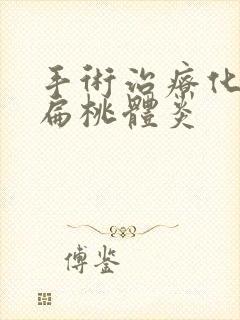 手術治療化
扁桃體炎
傅鉴